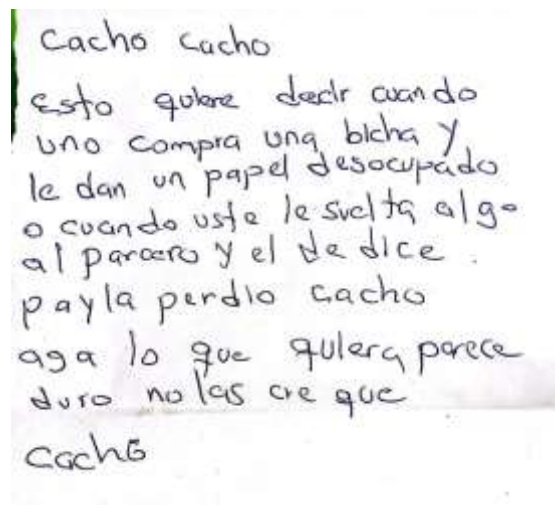 Cacho cacho
esto quiere decir cuando
uno compra una bicha y
le dan un papel desocupado
o cuando uste le suelta algo
al parcero y el le dice.
payla perdio cacho
aga lo que quiera parece
duro no las cre que
cacho